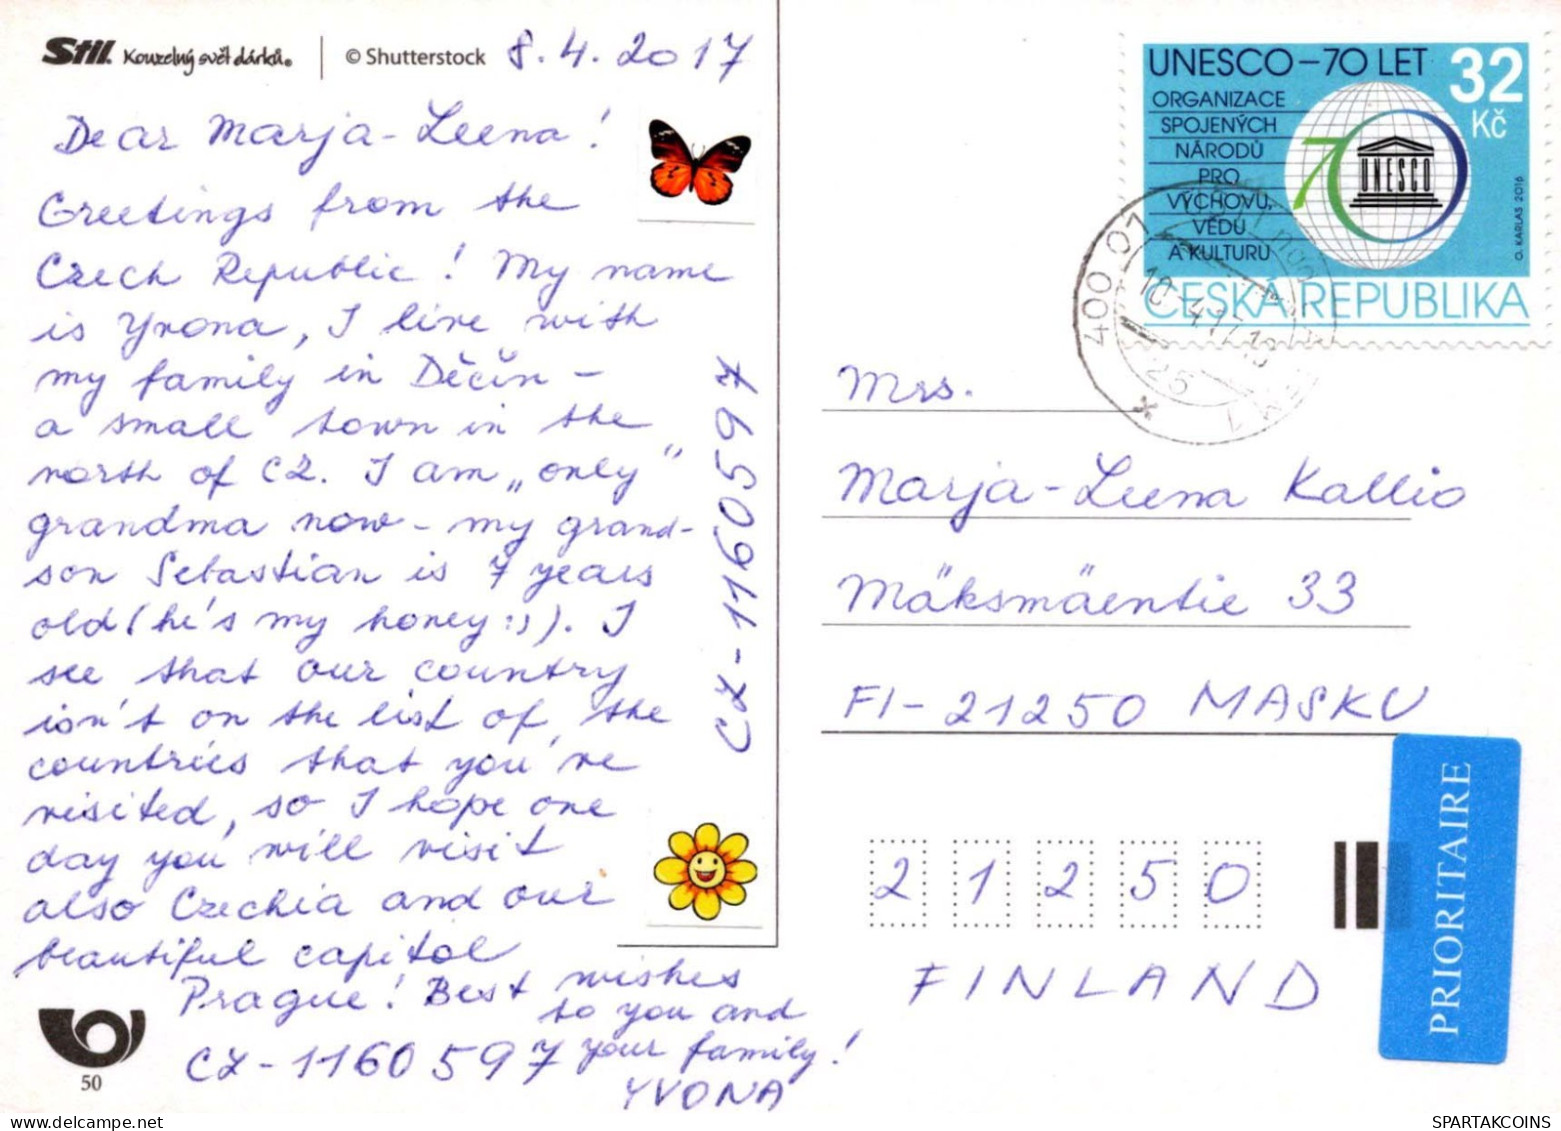 Stil. Kouzelný svět dárků.
© Shutterstock
8.4.2017
Dear Marja-Leena!
Greetings from the
Czech Republic! My name
is Yvona, I live with
my family in Děčín -
a small town in the
north of CZ. I am „only"
grandma now - my grand-
son Sebastian is 7 years
old (he's my honey :)). I
see that our country
isn't on the list of the
countries that you've
visited, so I hope one
day you will visit
also Czechia and our
beautiful capitol
Prague! Best wishes
to you and
your family!
YVONA
CZ-1160597
CZ-1160597
50
UNESCO – 70 LET
32
Kč
ORGANIZACE
SPOJENÝCH
NÁRODŮ
PRO
VÝCHOVU,
VĚDU
A KULTURU
70
UNESCO
O. KARLAS 2016
ČESKÁ REPUBLIKA
400 01
10.4.17.18
25
Mrs.
Marja-Leena Kallio
Mäksmäentie 33
FI-21250 MASKU
21250
FINLAND
PRIORITAIRE
SPARTAKCOINS